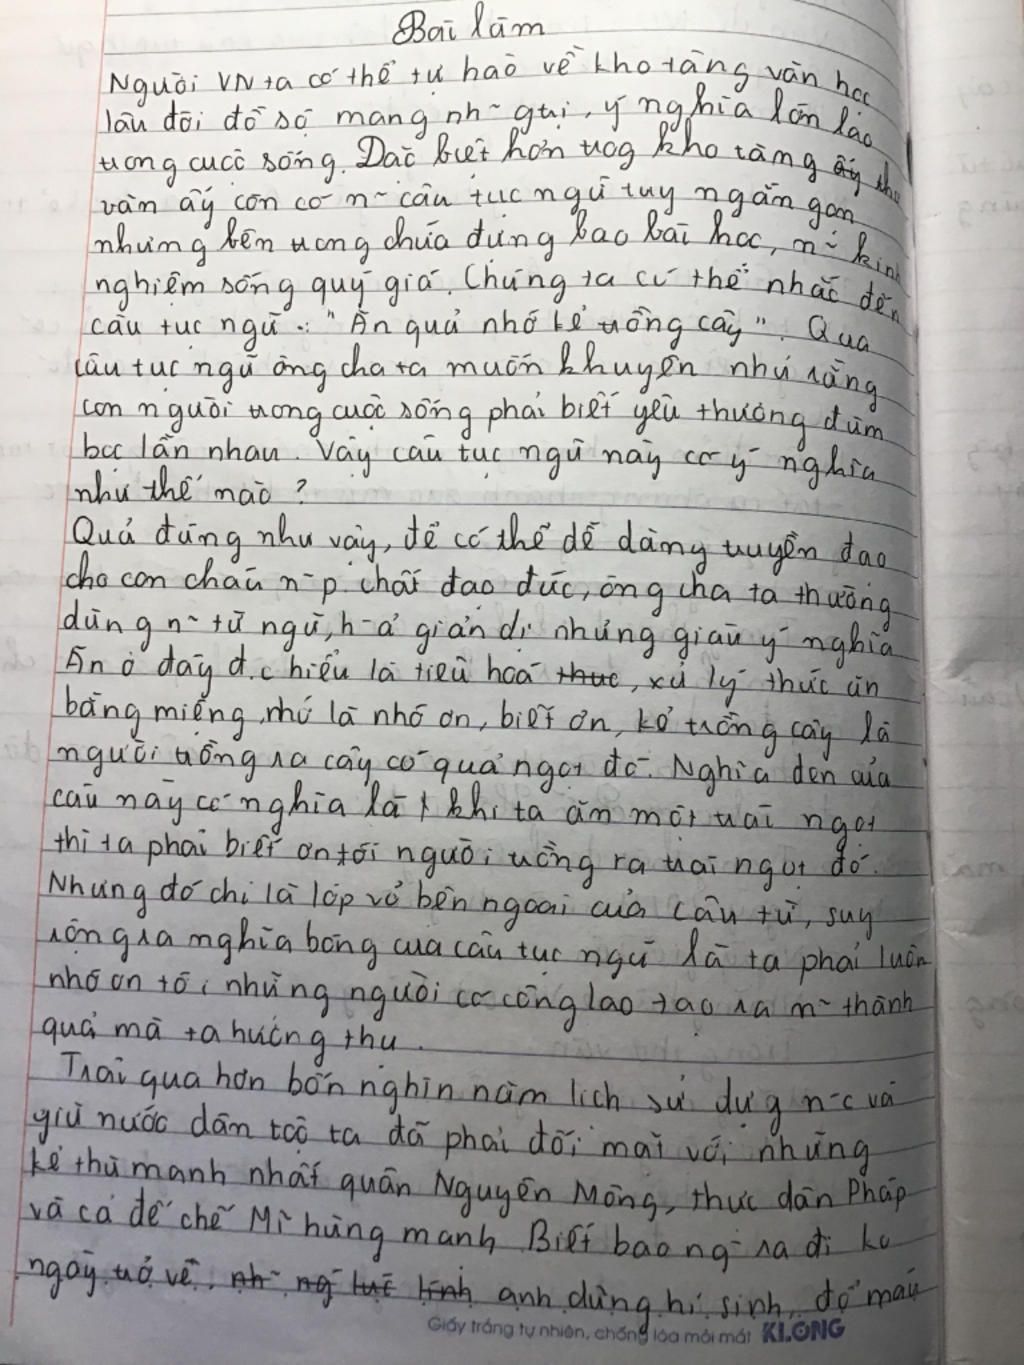 Bài làm
Người VN ta có thể tự hào về kho tàng văn học
lâu đời đồ sộ mang nh~ giá trị, ý nghĩa lớn lao
trong cuộc sống. Đặc biệt hơn trog kho tàng ấy thơ
văn ấy còn có n~ câu tục ngữ tuy ngắn gọn
nhưng bên trong chứa đựng bao bài học, n~ kinh
nghiệm sống quý giá. Chúng ta có thể nhắc đến
câu tục ngữ : "Ăn quả nhớ kẻ trồng cây". Qua
câu tục ngữ ông cha ta muốn khuyên nhủ rằng
con người trong cuộc sống phải biết yêu thương đùm
bọc lẫn nhau. Vậy câu tục ngữ này có ý nghĩa
như thế nào ?
Quả đúng như vậy, để có thể dễ dàng truyền đạo
cho con cháu n~ p.chất đạo đức, ông cha ta thường
dùng n~ từ ngữ, h-ả giản dị nhưng giàu ý nghĩa
Ăn ở đây đ.c hiểu là tiêu hoá thức, xử lý thức ăn
bằng miệng, nhớ là nhớ ơn, biết ơn, kẻ trồng cây là
người trồng ra cây có quả ngọt đó. Nghĩa đen của
câu này có nghĩa là khi ta ăn một trái ngọt
thì ta phải biết ơn tới người trồng ra trái ngọt đó.
Nhưng đó chỉ là lớp vỏ bên ngoài của câu từ, suy
rộng ra nghĩa bóng của câu tục ngữ là ta phải luôn
nhớ ơn tới những người có công lao tạo ra n~ thành
quả mà ta hưởng thụ.
Trải qua hơn bốn nghìn năm lịch sử dựg n-c và
giữ nước dân tộc ta đã phải đối mặt với những
kẻ thù mạnh nhất quân Nguyên Mông, thực dân Pháp
và cả đế chế Mĩ hùng mạnh. Biết bao ng- ra đi ko
ngày trở về, anh dũng hi sinh, đổ máu
Giấy trắng tự nhiên, chống lóa mỏi mắt KLONG